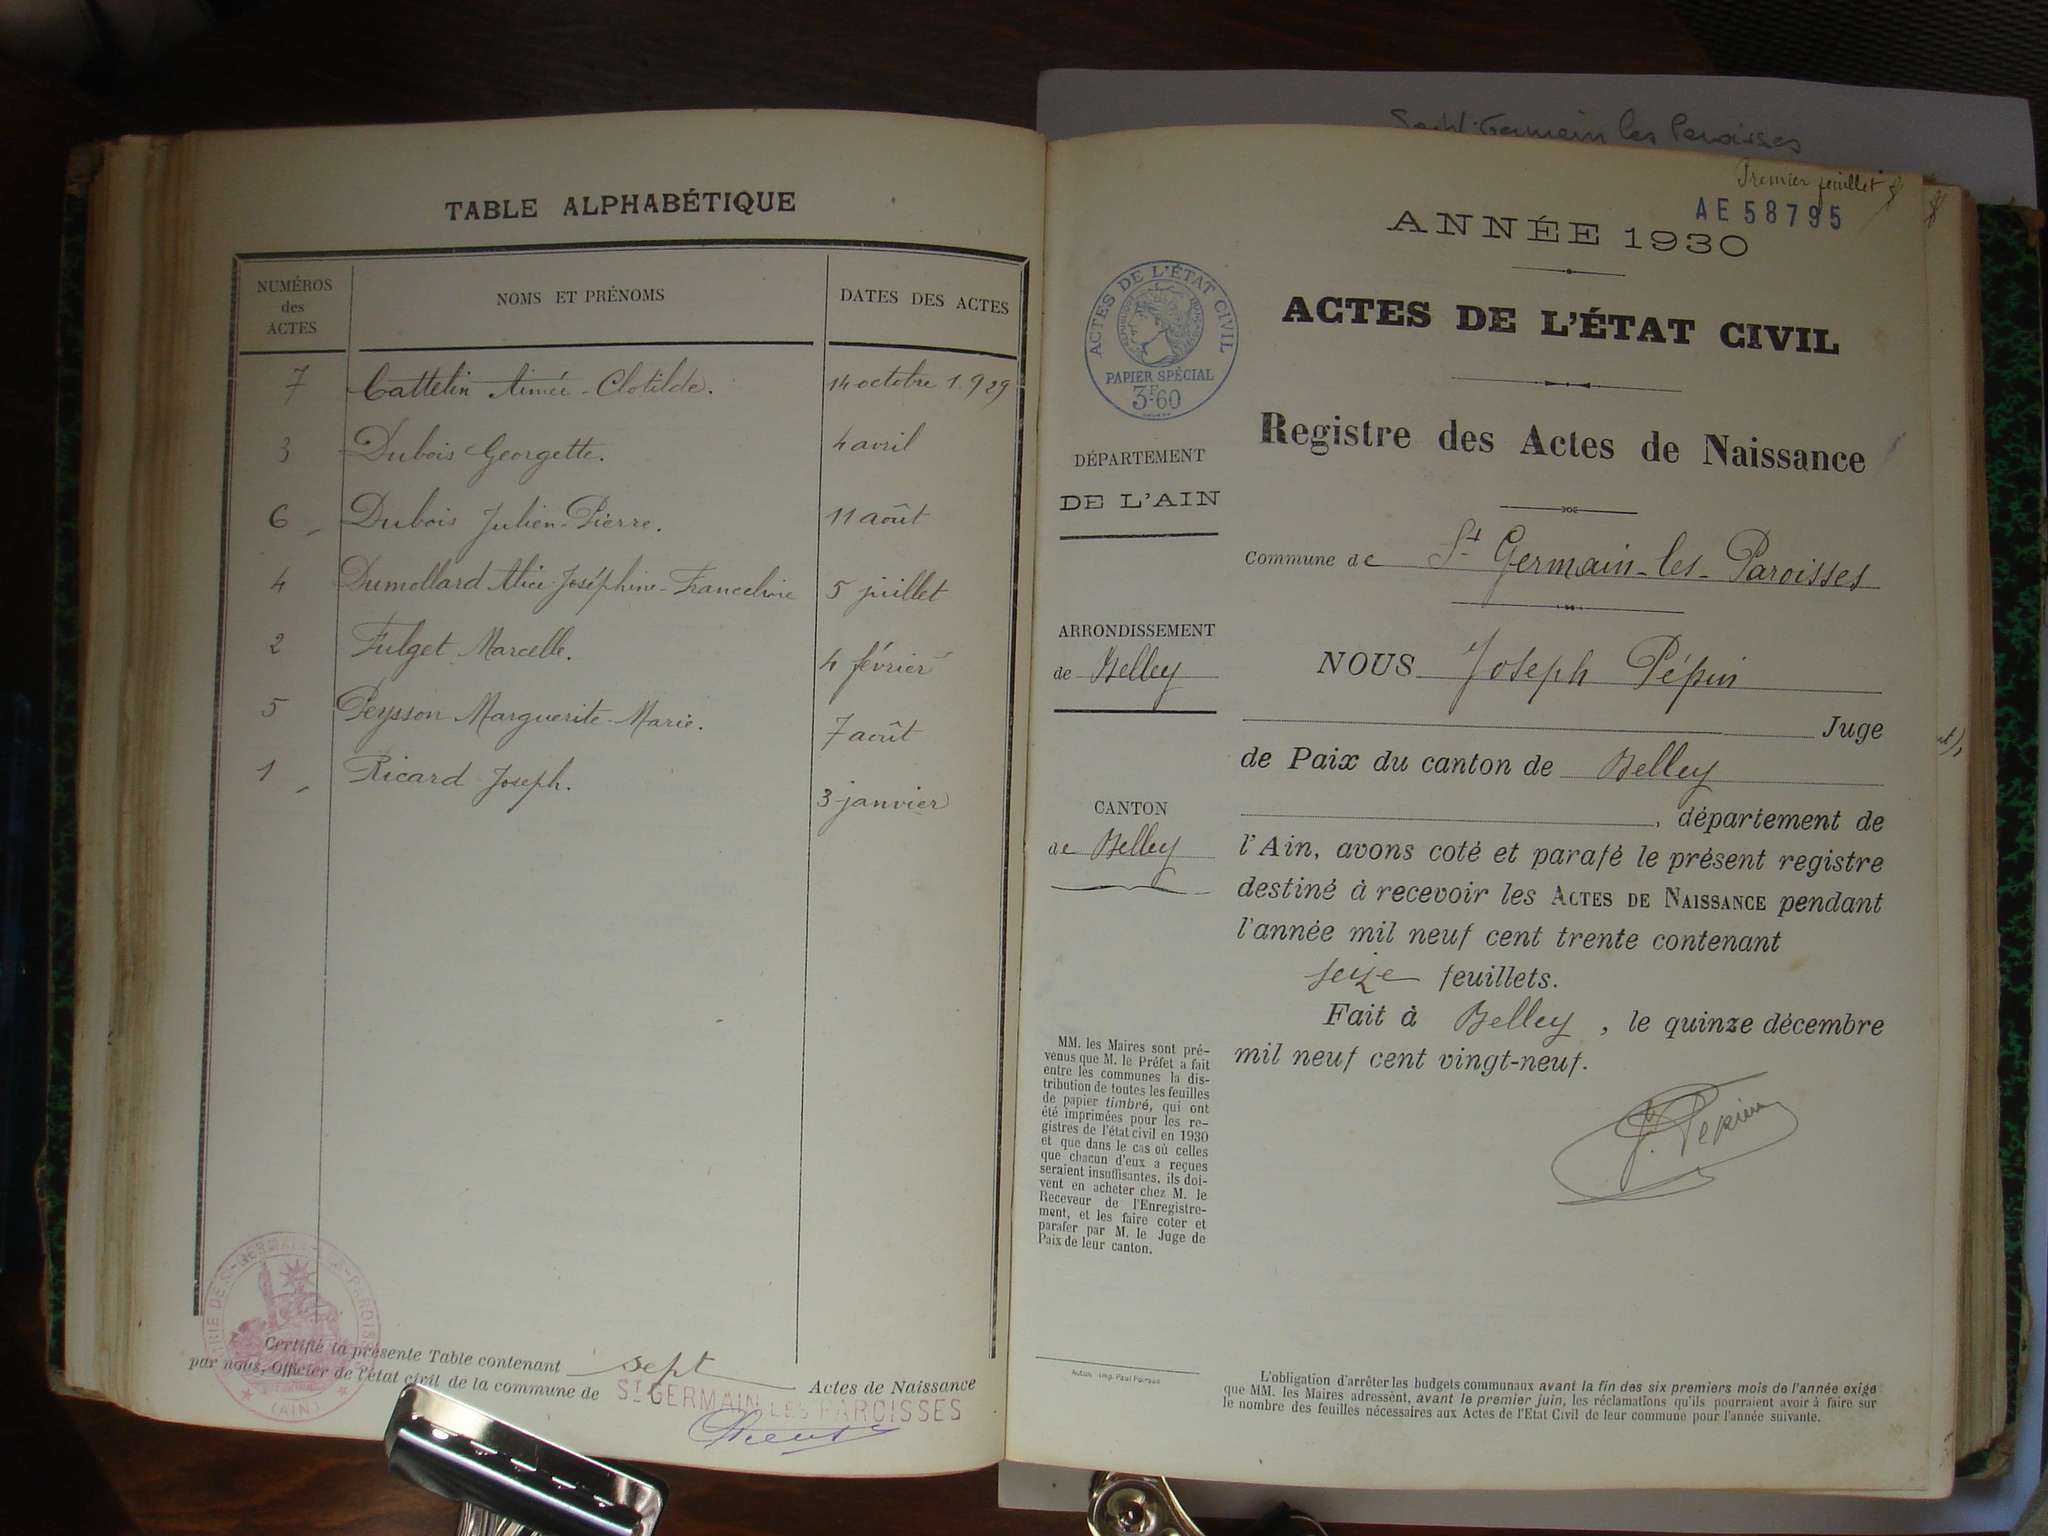 Saint-Germain les Paroisses
TABLE ALPHABÉTIQUE
NUMÉROS des ACTES
NOMS ET PRÉNOMS
DATES DES ACTES
7 Cattelin Aimée-Clotilde. 14 octobre 1.929
3 Dubois Georgette. 4 avril
6 Dubois Julien-Pierre. 11 août
4 Dumollard Alice-Joséphine-Franceline 5 juillet
2 Fulget Marcelle. 4 février
5 Peysson Marguerite-Marie. 7 août
1 Ricard Joseph. 3 janvier
Certifié la présente Table contenant sept Actes de Naissance
par nous, Officier de l'état civil de la commune de ST GERMAIN LES PAROISSES
MAIRIE DE ST-GERMAIN-LES-PAROISSES
(AIN)
Premier feuillet
AE 58795
ANNÉE 1930
ACTES DE L'ÉTAT CIVIL
PAPIER SPÉCIAL
3F60
ACTES DE L'ÉTAT CIVIL
Registre des Actes de Naissance
DÉPARTEMENT
DE L'AIN
Commune de St Germain-les-Paroisses
ARRONDISSEMENT
de Belley
CANTON
de Belley
NOUS Joseph Pépin
Juge
de Paix du canton de Belley
, département de
l'Ain, avons coté et parafé le présent registre
destiné à recevoir les ACTES DE NAISSANCE pendant
l'année mil neuf cent trente contenant
seize feuillets.
Fait à Belley, le quinze décembre
mil neuf cent vingt-neuf.
J. Pépin
MM. les Maires sont pré-
venus que M. le Préfet a fait
entre les communes la dis-
tribution de toutes les feuilles
de papier timbré, qui ont
été imprimées pour les re-
gistres de l'état civil en 1930
et que dans le cas où celles
que chacun d'eux a reçues
seraient insuffisantes, ils doi-
vent en acheter chez M. le
Receveur de l'Enregistre-
ment, et les faire coter et
parafer par M. le Juge de
Paix de leur canton.
L'obligation d'arrêter les budgets communaux avant la fin des six premiers mois de l'année exige
que MM. les Maires adressent, avant le premier juin, les réclamations qu'ils pourraient avoir à faire sur
le nombre des feuilles nécessaires aux Actes de l'Etat Civil de leur commune pour l'année suivante.